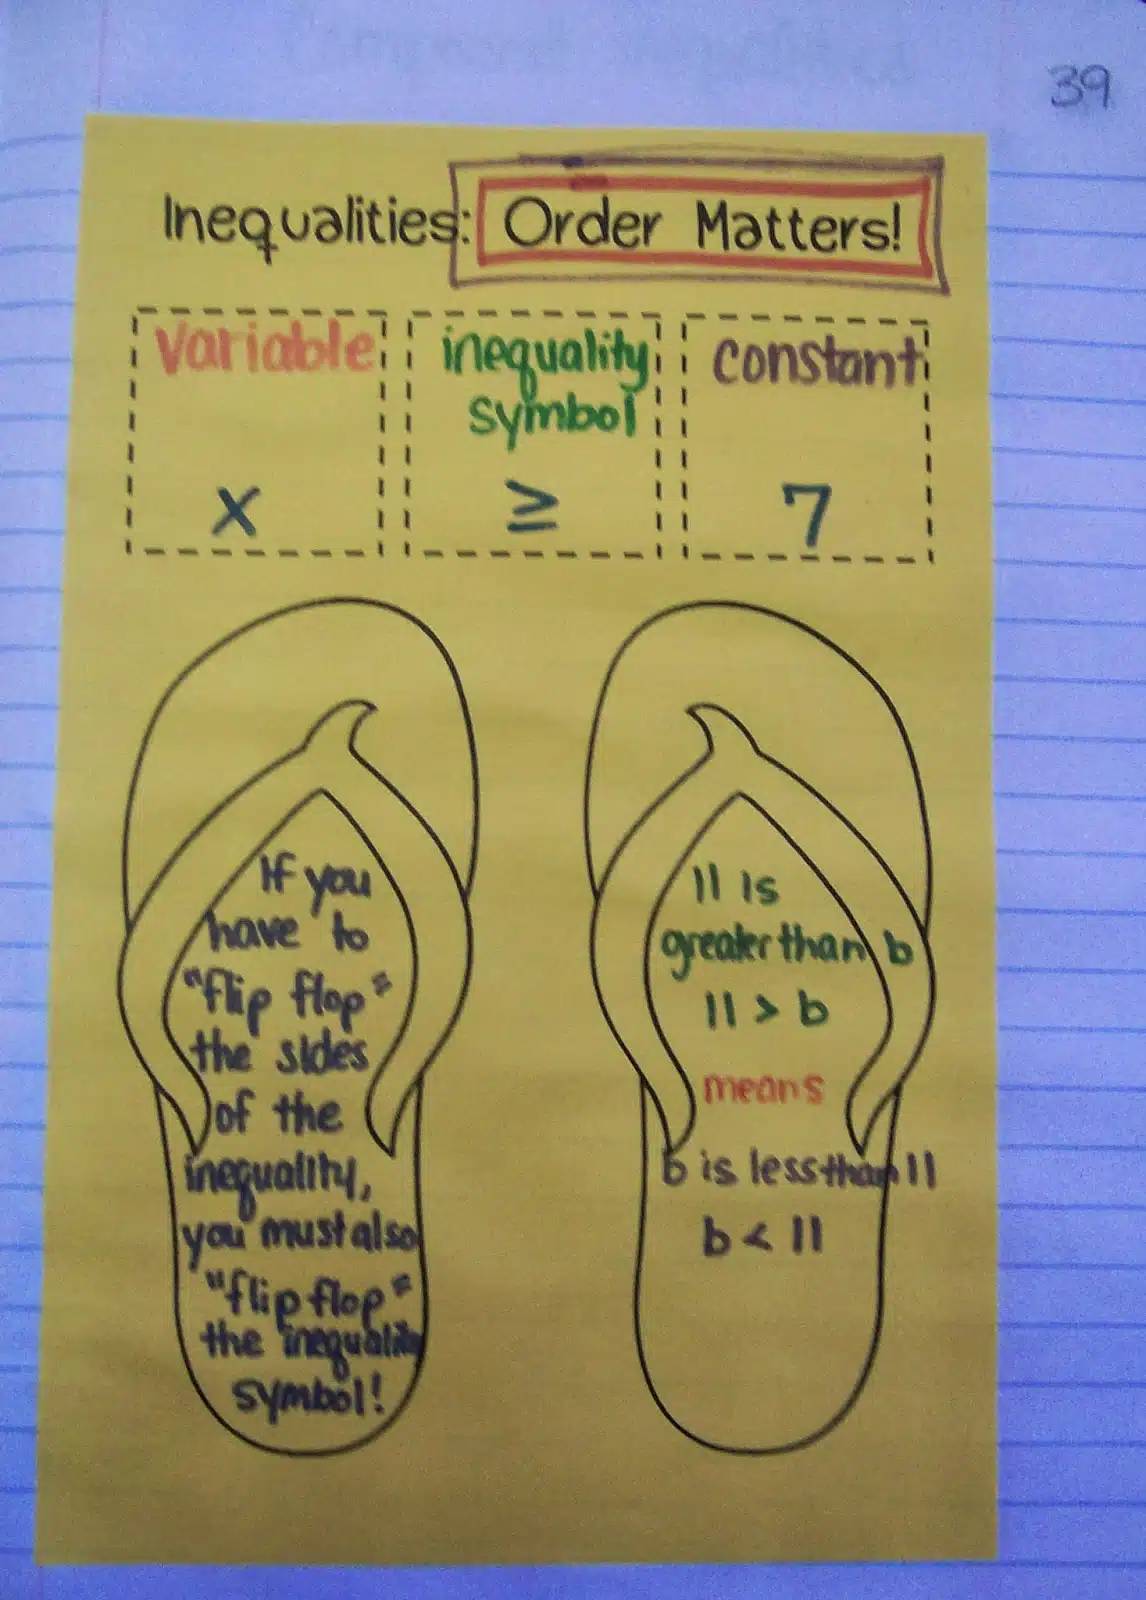 39
Inequalities: Order Matters!
Variable
inequality
symbol
constant
x
≥
7
If you
have to
"flip flop"
the sides
of the
inequality,
you must also
"flip flop"
the inequality
symbol!
11 is
greater than b
11 > b
means
b is less than 11
b < 11